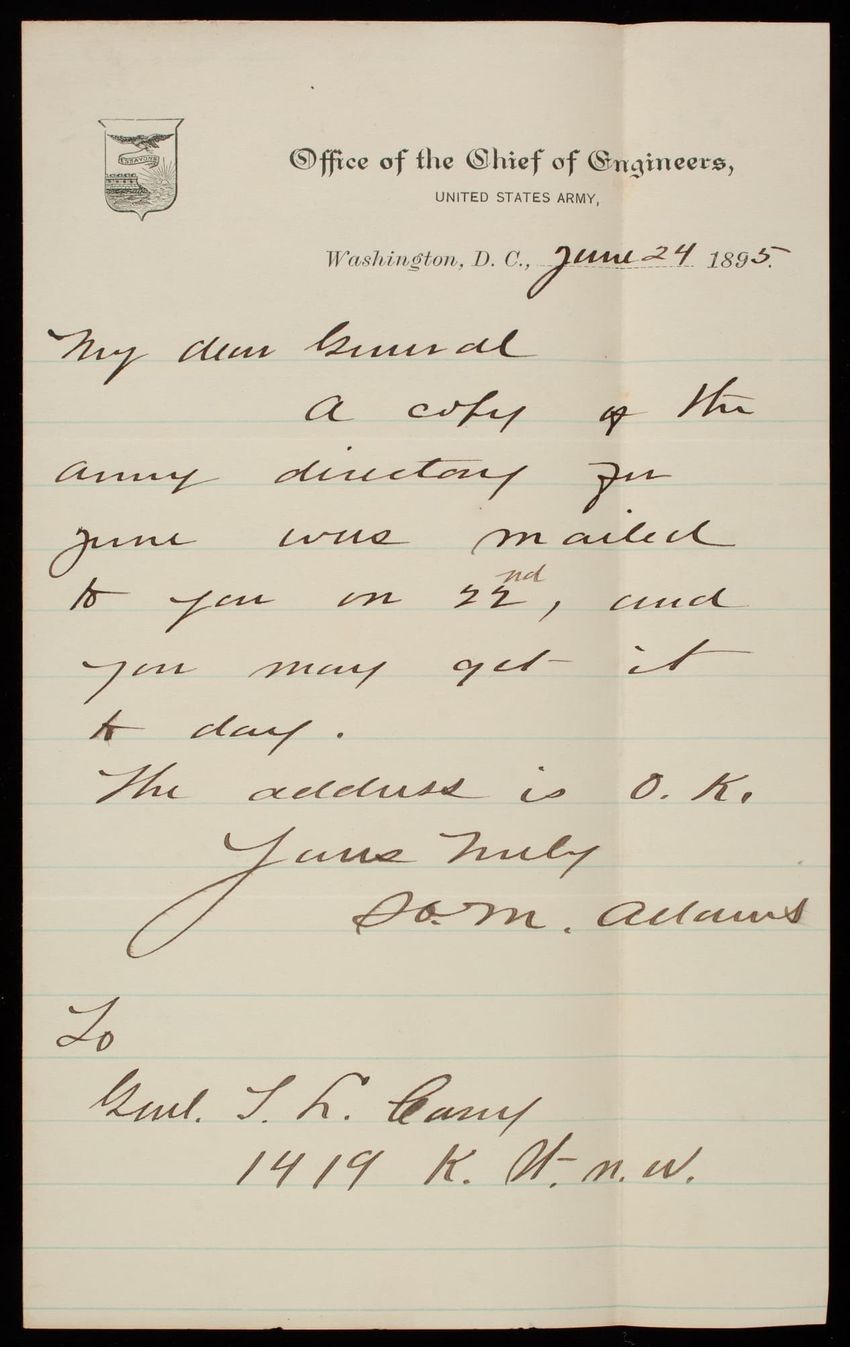 ESSAYONS
Office of the Chief of Engineers,
UNITED STATES ARMY,
Washington, D. C., June 24 1895.
My dear General
A copy of the
army directory for
June was mailed
to you on 22nd, and
you may get it
to day.
The address is O. K.
Yours truly
M. Adams
To
Genl. T. L. Casey
1419 K. St. N. W.